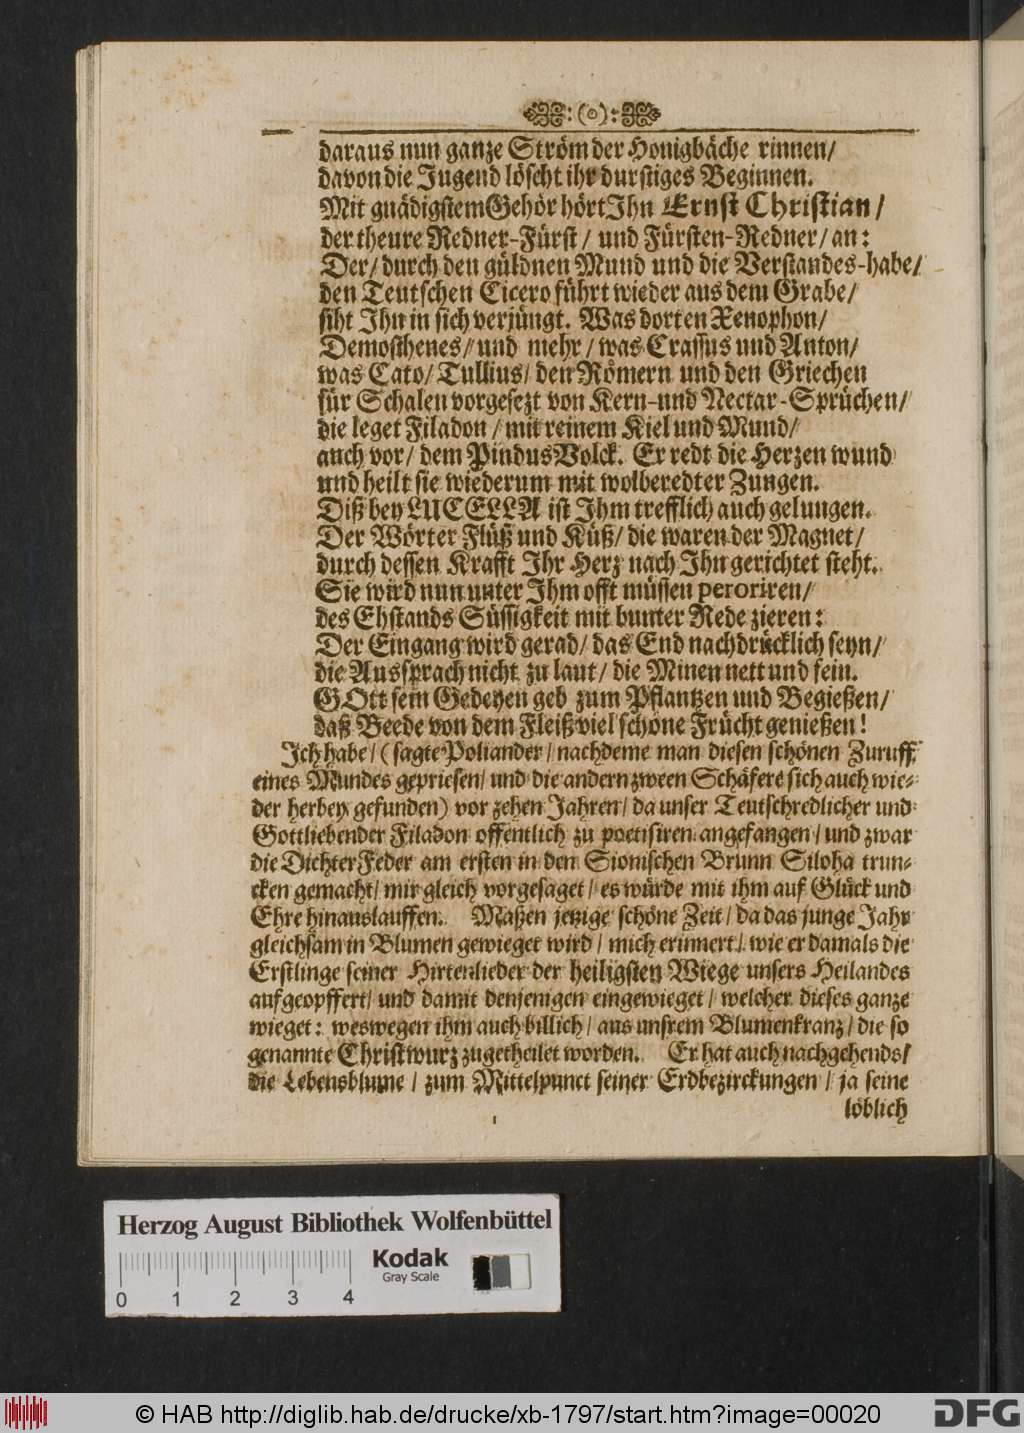 :(o):
daraus nun ganze Ström der Honigbäche rinnen/
davon die Jugend löscht ihr durstiges Beginnen.
Mit gnädigstem Gehör hört Ihn Ernst Christian/
der theure Redner-Fürst/ und Fürsten-Redner/ an:
Der/ durch den güldnen Mund und die Verstandes-habe/
den Teutschen Cicero führt wieder aus dem Grabe/
siht Ihn in sich verjüngt. Was dorten Xenophon/
Demosthenes/ und mehr/ was Crassus und Anton/
was Cato/ Tullius/ den Römern und den Griechen
für Schalen vorgesezt von Kern- und Nectar-Sprüchen/
die leget Filadon/ mit reinem Kiel und Mund/
auch vor/ dem Pindus Volck. Er redt die Herzen wund
und heilt sie wiederum mit wolberedter Zungen.
Diß bey LUCELLA ist Ihm trefflich auch gelungen.
Der Wörter Flüß und Küß/ die waren der Magnet/
durch dessen Krafft Ihr Herz nach Ihn gerichtet steht.
Sie wird nun unter Ihm offt müssen peroriren/
des Ehstands Süssigkeit mit bunter Rede zieren:
Der Eingang wird gerad/ das End nachdrücklich seyn/
die Aussprach nicht zu laut/ die Minen nett und fein.
GOtt sein Gedeyen geb zum Pflantzen und Begießen/
daß Beede von dem Fleiß viel schöne Frücht genießen!
Ich habe/ (sagte Poliander/ nachdeme man diesen schönen Zuruff
eines Mundes gepriesen/ und die andern zween Schäfere sich auch wie-
der herbey gefunden) vor zehen Jahren/ da unser Teutschredlicher und
Gottliebender Filadon offentlich zu poetisiren angefangen/ und zwar
die DichterFeder am ersten in den Sionischen Brunn Siloha trun-
cken gemacht/ mir gleich vorgesaget/ es würde mit ihm auf Glück und
Ehre hinauslauffen. Maßen jetzige schöne Zeit/ da das junge Jahr
gleichsam in Blumen gewieget wird/ mich erinnert/ wie er damals die
Erstlinge seiner Hirtenlieder der heiligsten Wiege unsers Heilandes
aufgeopffert/ und damit denjenigen eingewieget/ welcher dieses ganze
wieget: weswegen ihm auch billich/ aus unsrem Blumenkranz/ die so
genannte Christwurz zugetheilet worden. Er hat auch nachgehends/
die Lebensblume/ zum Mittelpunct seiner Erdbezirckungen/ ja seine
löblich
Herzog August Bibliothek Wolfenbüttel
Kodak
Gray Scale
0 1 2 3 4
© HAB http://diglib.hab.de/drucke/xb-1797/start.htm?image=00020
DFG